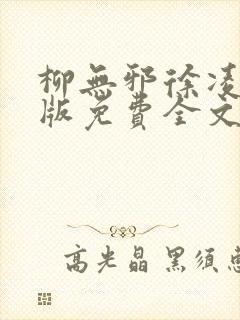 柳無邪徐凌
版免費全文
高光晶 黑須